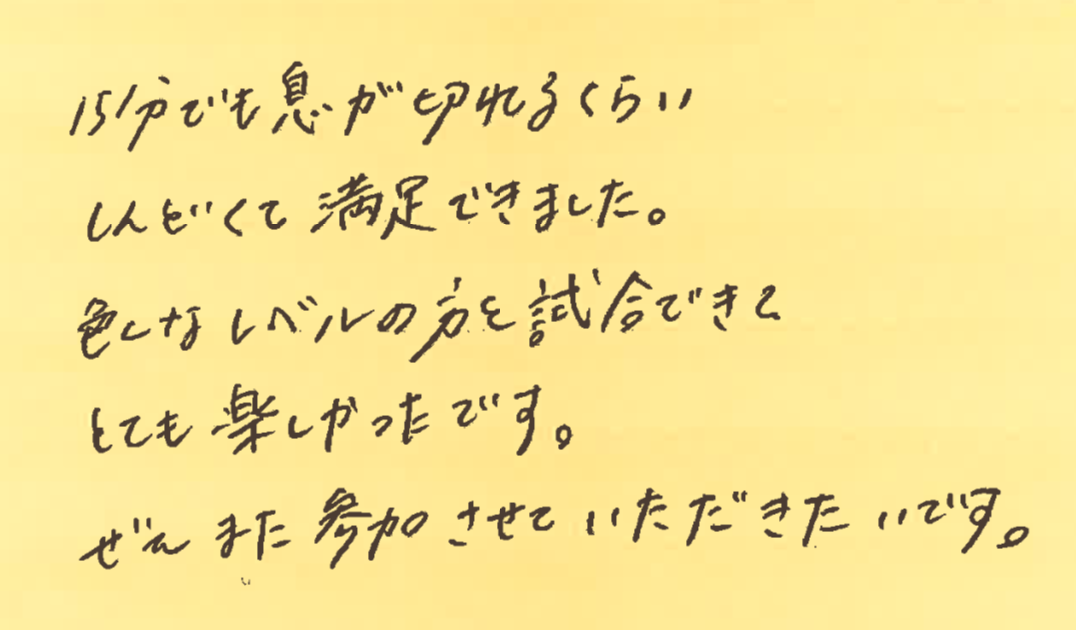 15分でも息が切れるくらい
しんどくて満足できました。
色んなレベルの方と試合できて
とても楽しかったです。
ぜひまた参加させていただきたいです。